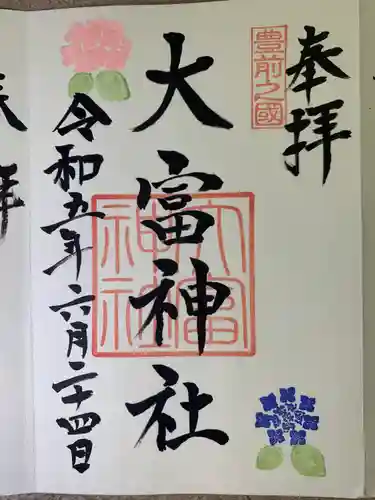 奉拝
豊前之國
大富神社
大富神社
令和五年六月二十四日
拝